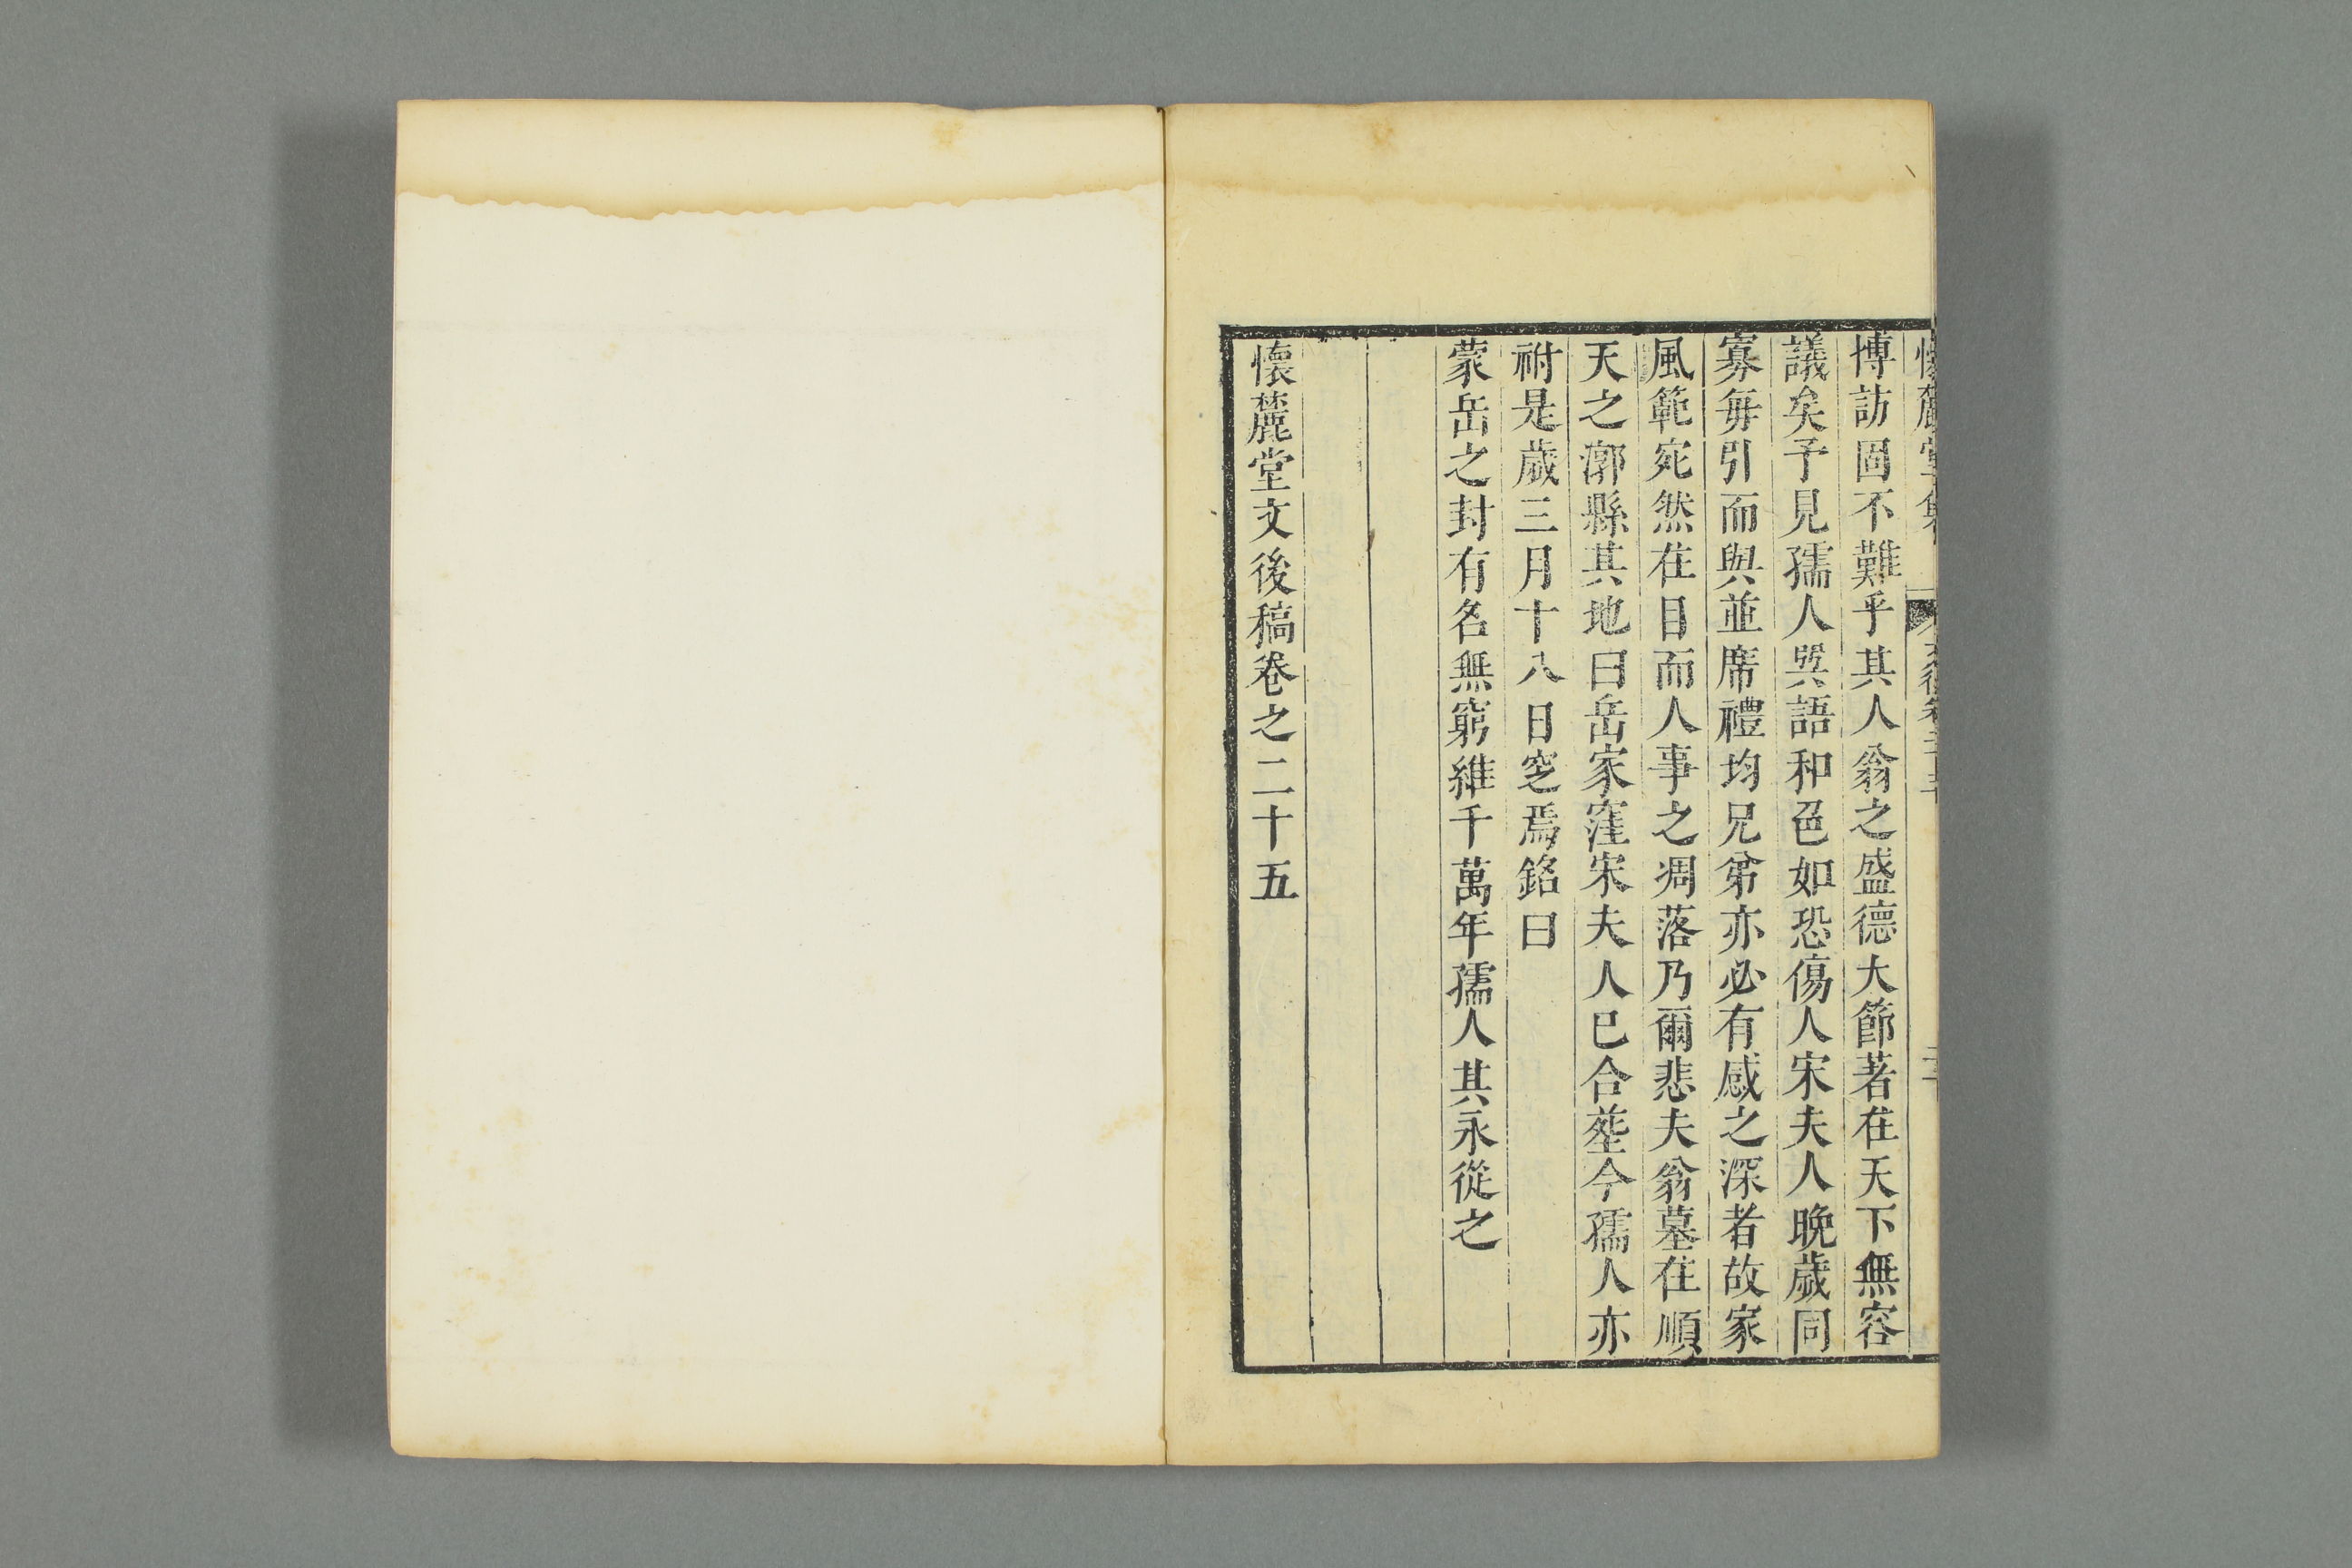 懷麓堂集
博訪固不難乎其人翁之盛德大節著在天下無容
議矣予見孺人㕦語和色如恐傷人宋夫人晚歲同
寡每引而與並席禮均兄弟亦必有感之深者故家
風範宛然在目而人事之凋落乃爾悲夫翁墓在順
天之漷縣其地曰岳家窪宋夫人已合塟今孺人亦
祔是歲三月十八日窆焉銘曰
蒙岳之封有名無窮維千萬年孺人其永從之
懷麓堂文後稿卷之二十五